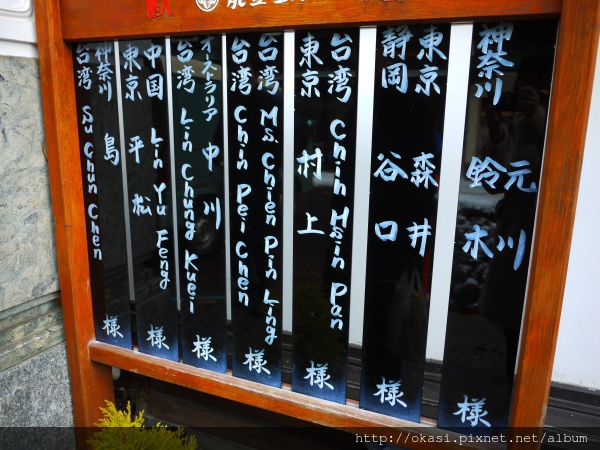 神奈川
元川
鈴木
様
東京 森井
静岡 谷口
様
台湾 Chih Hsin Pan
東京 村上
様
台湾 Ms. Chien Pin Ling
台湾 Chin Pei Chen
様
オーストラリア 中川
台湾 Lin Chung Kuei
様
中国 Lin Yu Feng
東京 平松
様
神奈川 島
台湾 Su Chun Chen
様
http://okasi.pixnet.net/album